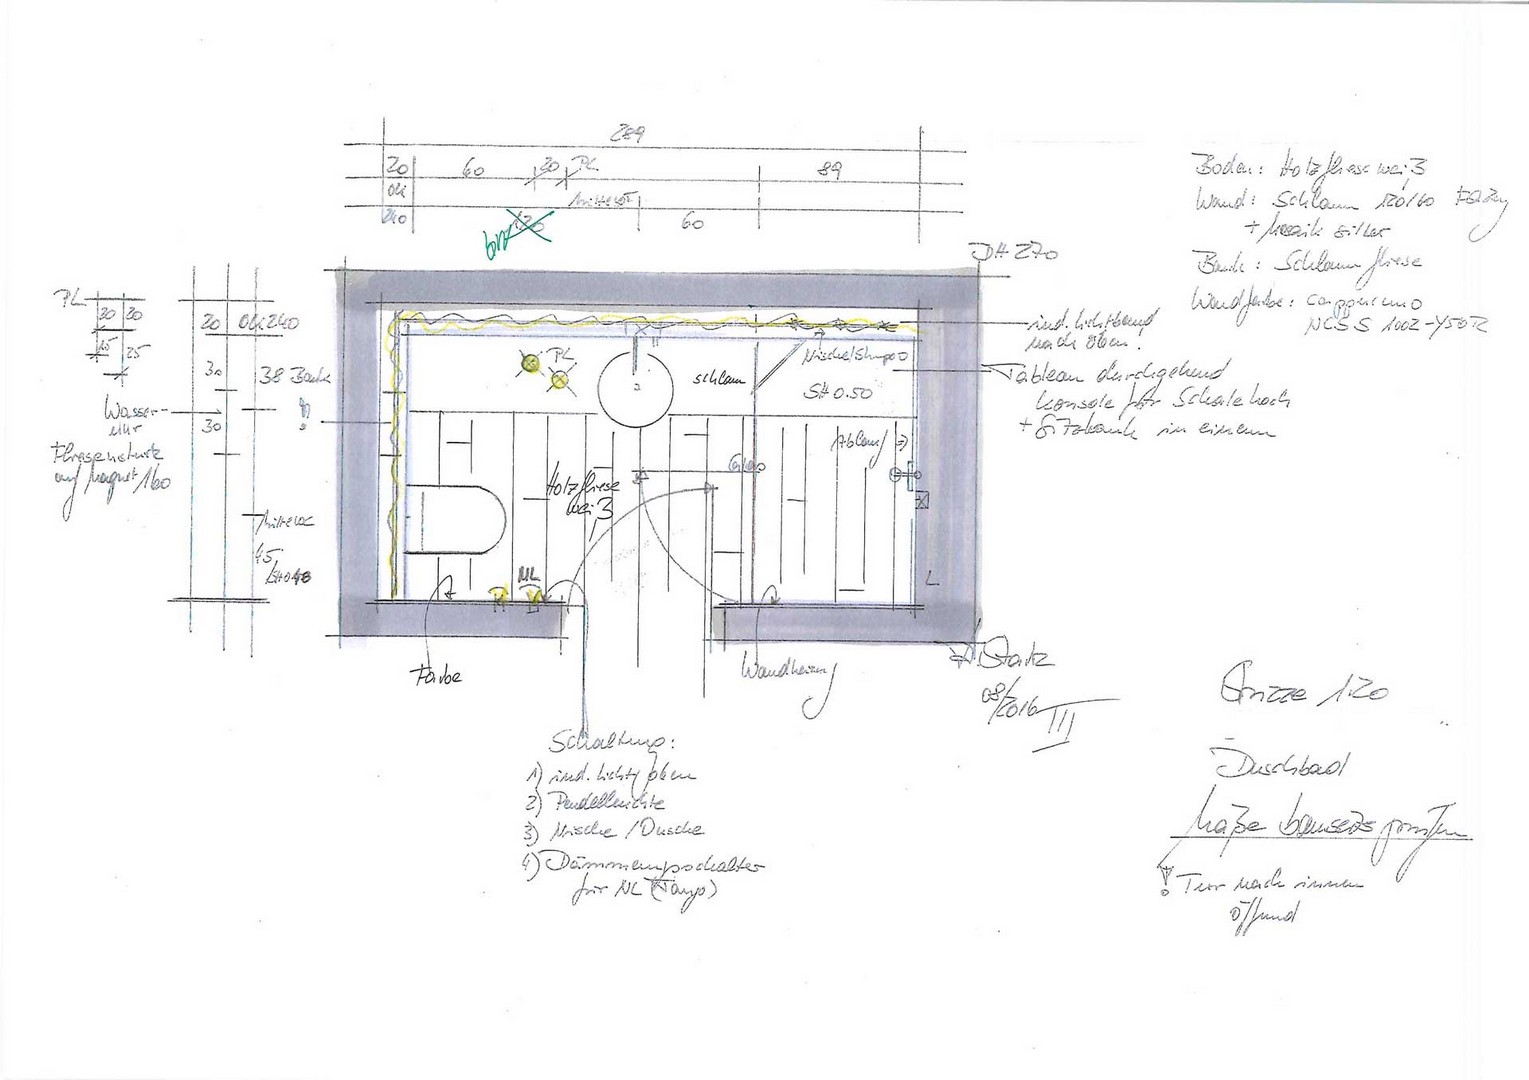 289
20 60 20 PL 89
OK
240
Mitte WT
60
DH 270
Boden: Holzfliese weiß
Wand: Schlamm 120/60
+ Mosaik silber
Bank: Schlamm fliese
Wandfarbe: cappuccino
NCS S 1002-Y50R
PL
20 20
15
25
20 OK 240
30
38 Bank
30
Wasser-
auf Magnet 160
Mitte WC
45
ind. Lichtband
nach oben.
Tableau durchgehend
Konsole für Schale hoch
+ Sitzbank in einem
PL
schlamm
Nische/Shampoo
SH 0.50
Ablauf
Holzfliese
weiß
Glas
NL
L
Farbe
Wandheizung
08/2016
III
Schaltung:
1) ind. Licht oben
2) Pendelleuchte
3) Nische/Dusche
4) Dämmungsschalter
für NL (Tango)
Skizze 1:20
Duschbad
Maße bauseits prüfen
! Tür nach innen
öffnend